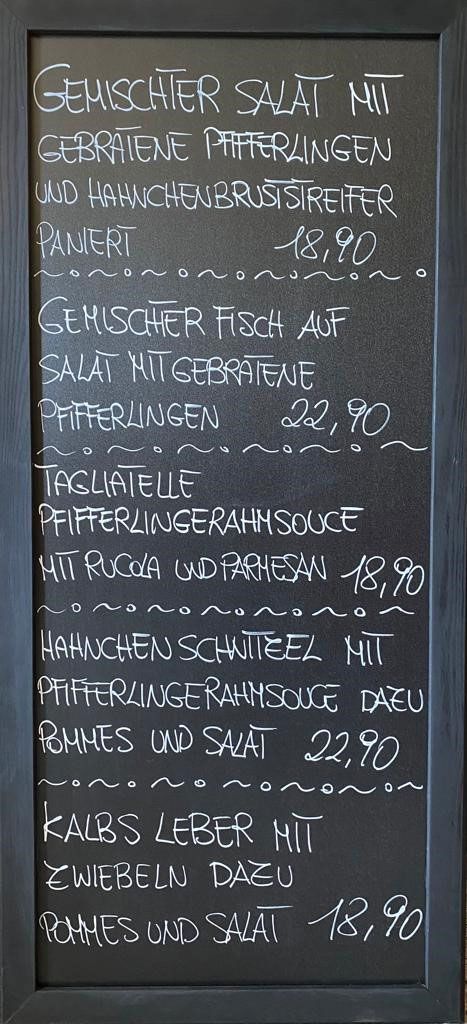 GEMISCHTER SALAT MIT
GEBRATENE PFIFFERLINGEN
UND HAHNCHENBRUSTSTREIFER
PANIERT 18,90
GEMISCHTER FISCH AUF
SALAT MIT GEBRATENE
PFIFFERLINGEN 22,90
TAGLIATELLE
PFIFFERLINGERAHMSOUCE
MIT RUCOLA UND PARMESAN 18,90
HAHNCHEN SCHNITZEL MIT
PFIFFERLINGERAHMSOUCE DAZU
POMMES UND SALAT 22,90
KALBS LEBER MIT
ZWIEBELN DAZU
POMMES UND SALAT 18,90